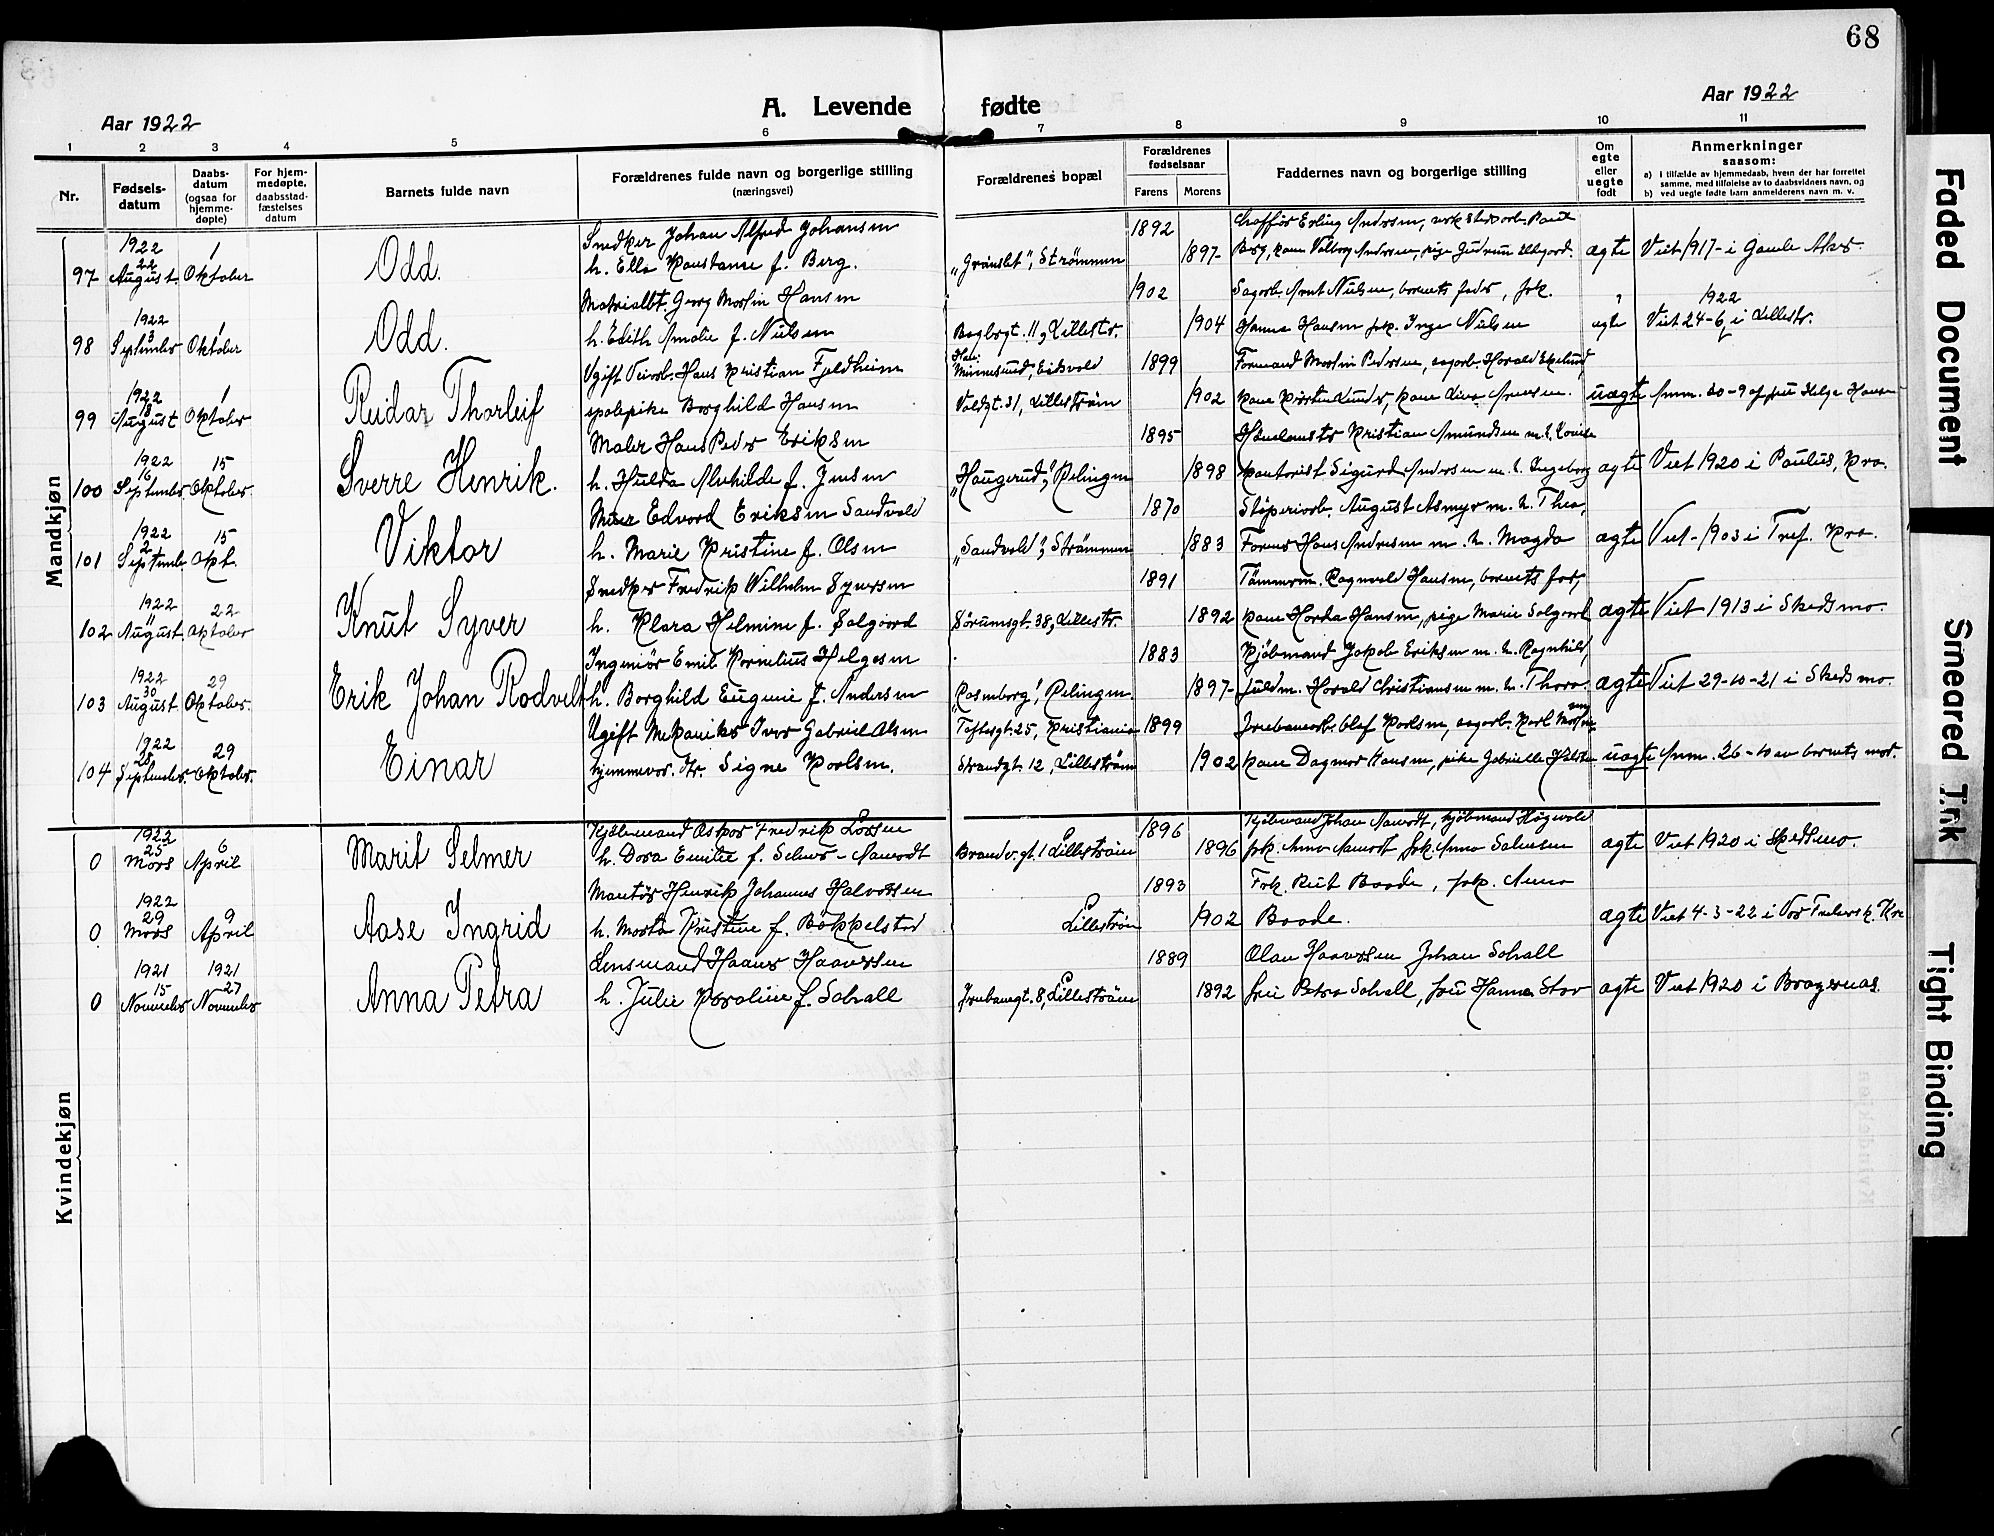 68
Aar 1922
A. Levende fødte
Aar 1922
1 2 3 4 5 6 7 8 9 10 11
Nr.
Fødsels-
datum
Daabs-
datum
(ogsaa for
hjemme-
døpte)
For hjem-
medøpte,
daabsstad-
fæstelses
datum
Barnets fulde navn
Forældrenes fulde navn og borgerlige stilling
(næringsvei)
Forældrenes bopæl
Forældrenes
fødselsaar
Farens Morens
Faddernes navn og borgerlige stilling
Om
egte
eller
uegte
født
Anmerkninger
saasom:
a) i tilfælde av hjemmedaab, hvem der har forrettet
samme, med tilføielse av to daabsvidners navn, og
b) ved uegte fødte barn anmelderens navn m. v.
Mandkjøn
1922 1 Snedker Johan Alfred Johansen 1892 Chaffør Erling Andersen,
97 22 August Oktober Odd. h. Ella Konstanse f. Berg. Strømmen 1897 Berg, kone Valborg Andersen, pige Gudrun ægte Viet 1917 i Gamle Aker
Georg Martin Hansen 1902 Sagarb. Arnt Nielsen, barnets fader, frk.
1922 1922
98 3 September 1 Oktober Odd. h. Edith Amalie f. Nielsen 11, Lillestr. 1904 Hanna Hansen frk. Inga Nielsen ægte Viet 24-6, i Lillestr.
1922 1 Ugift Veiarb. Hans Kristian Fjeldheim Minnesund, Eidsvold 1899 Formand Martin Pedersen, sagarb. Harald Ekelund,
99 18 August Oktober Reidar Thorleif spolepike Borghild Hansen Voldgt. 31, Lillestrøm 1902 uægte Anm. 30-9 af fru Helga Hansen
Maler Hans Peder Eriksen 1895 Kristian Amundsen m. h. Louise
1922 15
100 16 September Oktober. Sverre Henrik. h. Hulda Alvhilde f. Jensen "Haugerud", Rælingen 1898 Kontorist Sigurd Andersen m. h. Ingeborg ægte Viet 1920 i Paulus, Kra.
Edvard Eriksen Sandvold 1870 Støperiarb. August Asmyr m. h. Thea,
1922 15
101 2 Septembr Okt. Viktor h. Marie Kristine f. Olsen "Sandvold", Strømmen 1883 Former Hans Andresen m. h. Magda ægte Viet 1903 i Tref. Kra.
Snedker Fredrik Wilhelm Syversen 1891 Tømmerm. Ragnvald Hansen, barnets far,
1922 22
102 11 August Oktober Knut Syver h. Klara Helmine f. Solgaard Sørumsgt. 38, Lillestr. 1892 kone Horda Hansen, pige Marie Solgaard ægte Viet 1913 i Skedsmo.
Ingeniør Emil Kornelius Helgesen 1883 Kjøbmand Jakob Eriksen m. h. Ragnhild,
1922 29
103 30 August Oktober. Erik Johan Rodvelt h. Borghild Eugenie f. Andersen "Rosenborg", Rælingen. 1897 Guldm. Harald Christiansen m. h. Thora. ægte Viet 29-10-21 i Skedsmo.
Ugift Mekaniker Iver Gabriel Olsen Toftesgt. 25, Kristiania 1899 Jernbanearb. Olaf Karlsen, sagarb. Karl
1922 29
104 25 September. Oktober. Einar hjemmevær. dtr. Signe Karlsen. Strandgt. 12, Lillestrøm 1902 kone Dagmar Hansen, pike Gabrielle uægte Anm. 26-10 av barnets mor.
Kvindekjøn
1922 6 Kjøbmand Oskar Fredrik Larsen 1896 Kjøbmand Johan Namodt, kjøbmand
0 25 Mars April Marit Selmer h. Dora Emilie f. Selmer-Aamodt 1 Lillestrøm 1896 frk. Anna Aamodt ægte Viet 1920 i Skedsmo.
1922 Montør Henrik Johannes Halvorsen 1893 Frk. Rut Baade, frk. Anna
0 29 Mars 9 April Aase Ingrid h. Marta Kristine f. Bökkelstad Lillestrøm 1902 Baade. ægte Viet 4-3-22 i Vor Frelsers k. Kra
1921 1921 Lensmand Haaver Haaversen 1889 Olav Haaversen Johan Solvall
0 15 November 27 November Anna Petra h. Julie Karoline f. Solvall Jernbanegt. 8, Lillestrøm 1892 fru Petra Solvall, fru Hanna Stav ægte Viet 1920 i Bragernæs.
Faded Document
Smeared Ink
Tight Binding